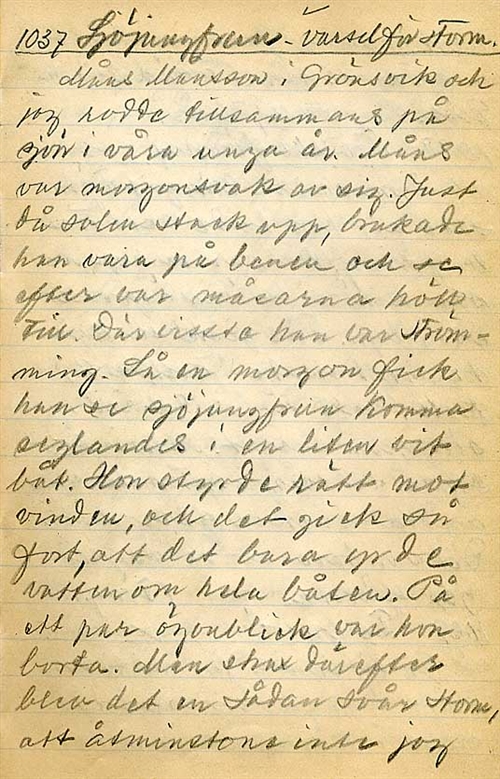 1037 Sjöjungfrun - varsel för storm.
Måns Månsson i Grönsvik och
jag rodde tillsammans på
sjön i våra unga år. Måns
var morgonsvak av sig. Just
då solen stack upp, brukade
han vara på benen och se
efter var måsarna höll
till. Där visste han var Ström-
ming. Så en morgon fick
han se sjöjungfrun komma
seglandes i en liten vit
båt. Hon styrde rätt mot
vinden, och det gick så
fort, att det bara yrde
vatten om hela båten. På
ett par ögonblick var hon
borta. Men strax därefter
blev det en sådan svår storm,
att åtminstone inte jag